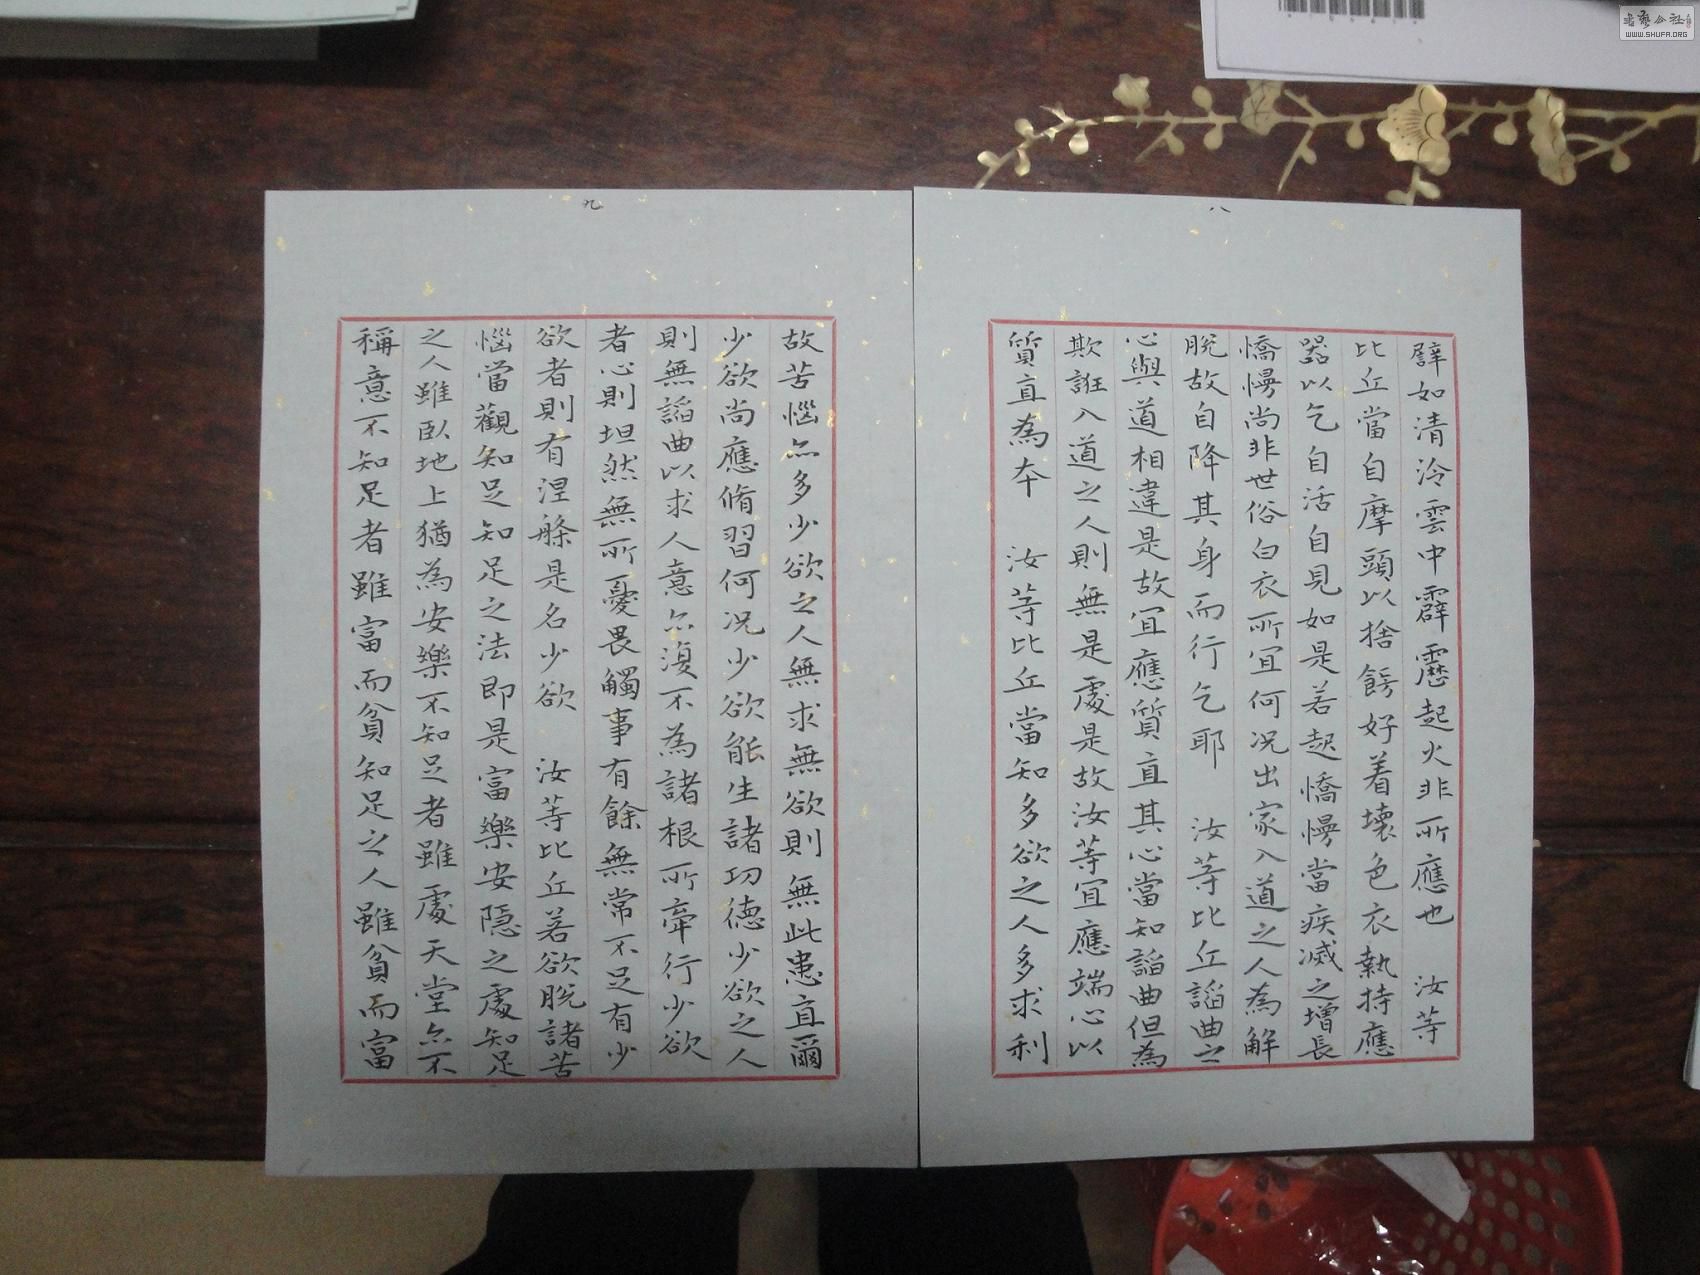 八
譬如清泠雲中霹靂起火非所應也　汝等
比丘當自摩頭以捨餝好着壞色衣執持應
器以乞自活自見如是若起憍慢當疾滅之增長
憍慢尚非世俗白衣所宜何況出家入道之人為解
脫故自降其身而行乞耶　汝等比丘諂曲之
心與道相違是故宜應質直其心當知諂曲但為
欺誑入道之人則無是處是故汝等宜應端心以
質直為本　汝等比丘當知多欲之人多求利
九
故苦惱亦多少欲之人無求無欲則無此患直爾
少欲尚應脩習何況少欲能生諸功德少欲之人
則無諂曲以求人意亦復不為諸根所牽行少欲
者心則坦然無所憂畏觸事有餘無常不足有少
欲者則有涅槃是名少欲　汝等比丘若欲脫諸苦
惱當觀知足知足之法即是富樂安隱之處知足
之人雖臥地上猶為安樂不知足者雖處天堂亦不
稱意不知足者雖富而貧知足之人雖貧而富
書藝公社
WWW.SHUFA.ORG